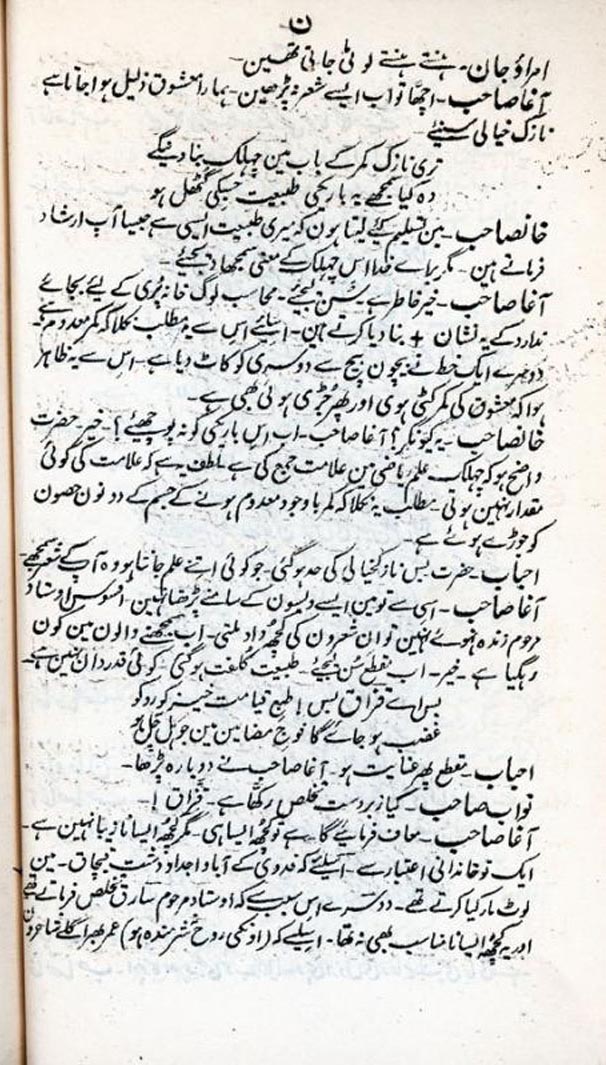 ن
امراؤ جان۔ ہنستے ہنستے لوٹی جاتی تھین۔
آغا صاحب۔ اچھا تو اب ایسے شعر نہ پڑھین۔ ہمارا معشوق ذلیل ہوا جاتا ہے
نازک خیالی سنیئے۔
تری نازک کمر کے باب مین چھلک بنا دینگے
وہ کیا سمجھے یہ باریکی طبیعت جسکی گٹھل ہو
خانصاحب۔ مین تسلیم کیے لیتا ہون کہ میری طبیعت ایسی ہے جیسا آپ ارشاد
فرماتے ہین۔ مگر براے خدا اس چھلک کے معنی سمجھا دیجئے۔
آغا صاحب۔ خیر خاطر ہے سُن لیجئے۔ محاسب لوگ خانہ پُری کے لیئے بجائے
ندارد کے یہ نشان + بنا دیا کرتے ہین۔ اسلیئے اس سے یہ مطلب نکلا کہ کمر معدوم ہے
دوسرے ایک خط نے بیچون بیچ سے دوسری کو کاٹ دیا ہے۔ اس سے یہ ظاہر
ہوا کہ معشوق کی کمر کٹی ہوی اور پھر جُڑی ہوئی بھی ہے۔
خانصاحب۔ یہ کیونکر؟ آغا صاحب۔ اب اس باریکی کو نہ پوچھیئے؟۔ خیر حضرت
واضح ہو کہ چھلک علم ریاضی مین علامت جمع کی ہے لطف یہ ہے کہ علامت کی کوئی
مقدار نہین ہوتی۔ مطلب یہ نکلا کہ کمر باوجود معدوم ہونے کے جسم کے دونون حصون
کو جوڑے ہوئے ہے۔
احباب۔ حضرت بس نازکخیالی کی حد ہو گئی۔ جو کوئی اتنے علم جانتا ہو وہ آپ کے شعر سمجھے
آغا صاحب۔ اسی سے تو مین ایسے ویسون کے سامنے پڑھتا نہین۔ افسوس اوستاد
مرحوم زندہ نہوئے نہین تو ان شعرون کی کچھ داد ملتی۔ اب سمجھنے والون مین کون
رہگیا ہے۔ خیر۔ اب مقطع سُن لیجئے۔ طبیعت کُلفت ہو گئی۔ کوئی قدردان نہین ہے۔
بس اے قزاق بس اطبع قیامت خیز کو روکو
غضب ہو جائے گا فوجِ مضامین مین جو ہل چل ہو
احباب۔ مقطع پھر عنایت ہو۔ آغا صاحب نے دوبارہ پڑھا۔
نواب صاحب۔ کیا زبردست تخلص رکھا ہے۔ قزاق!۔
آغا صاحب۔ معاف فرمائیے گا ہے تو کچھ ایسا ہی۔ مگر کچھ ایسا نازیبا نہین ہے۔
ایک تو خاندانی اعتبار سے۔ اسلیئے کہ فدوی کے آبا و اجداد دشت قبچاق۔ مین
لوٹ مار کیا کرتے تھے۔ دوسرے اس سبب سے کہ اوستاد مرحوم سارق تخلص فرماتے تھے
اور یہ کچھ ایسا نامناسب بھی نہ تھا۔ اسلیے کہ (اونکی روح نہ شرمندہ ہو) عمر بھر اگلے شاعرون